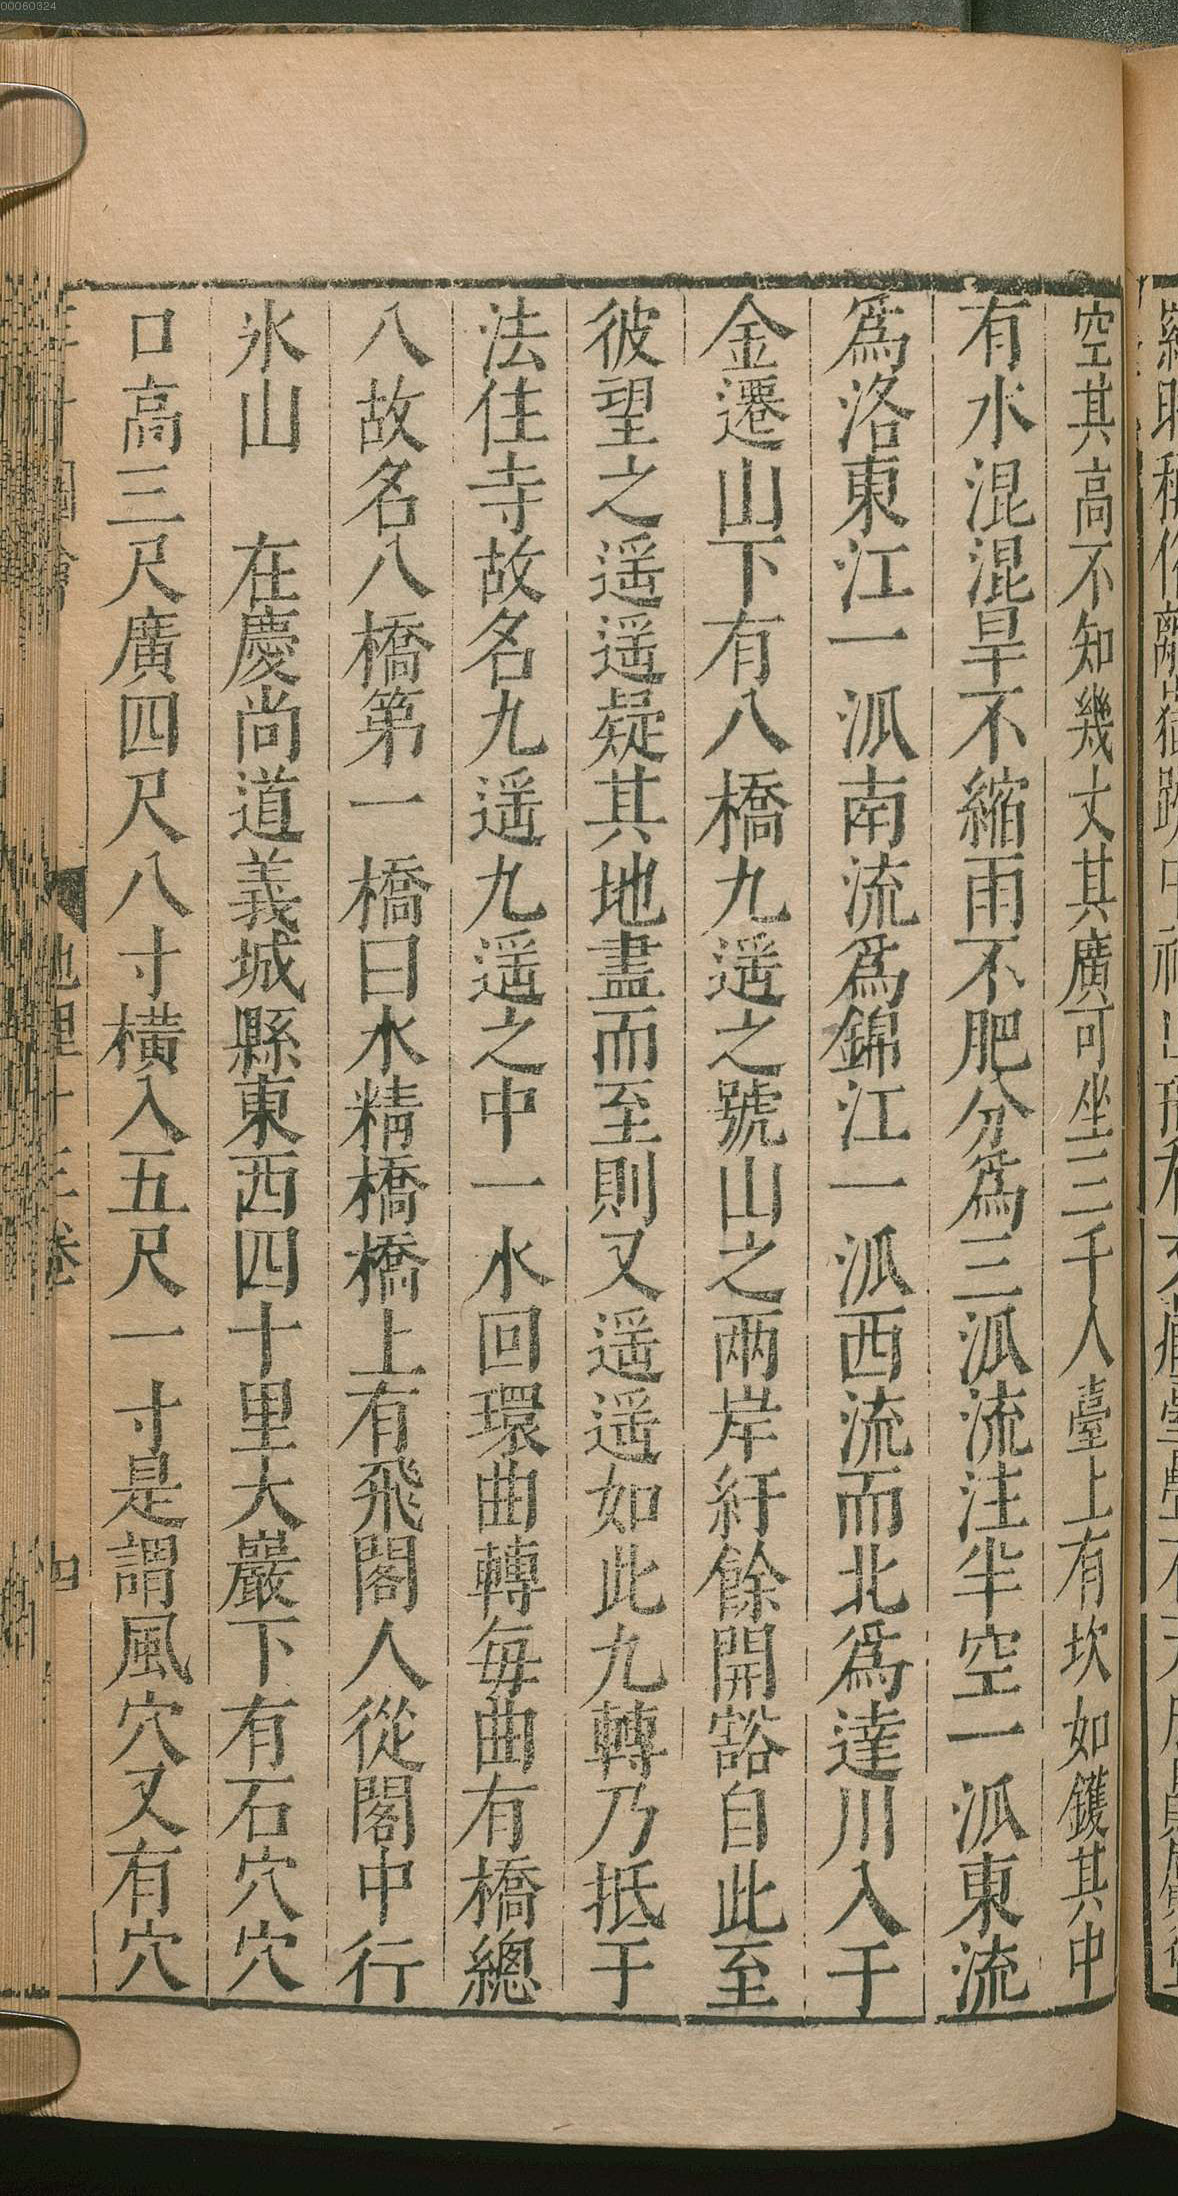 00060324
空其高不知幾丈其廣可坐三千人臺上有坎如鑊其中
有水混混旱不縮雨不肥分為三泒流注半空一泒東流
為洛東江一泒南流為錦江一泒西流而北為達川入于
金遷山下有八橋九遥之號山之兩岸紆餘開豁自此至
彼望之遥遥疑其地盡而至則又遥遥如此九轉乃抵于
法住寺故名九遥九遥之中一水回環曲轉每曲有橋總
八故名八橋第一橋曰水精橋橋上有飛閣人從閣中行
氷山　在慶尚道義城縣東西四十里大巖下有石穴穴
口高三尺廣四尺八寸橫入五尺一寸是謂風穴又有穴
地理十三卷
四